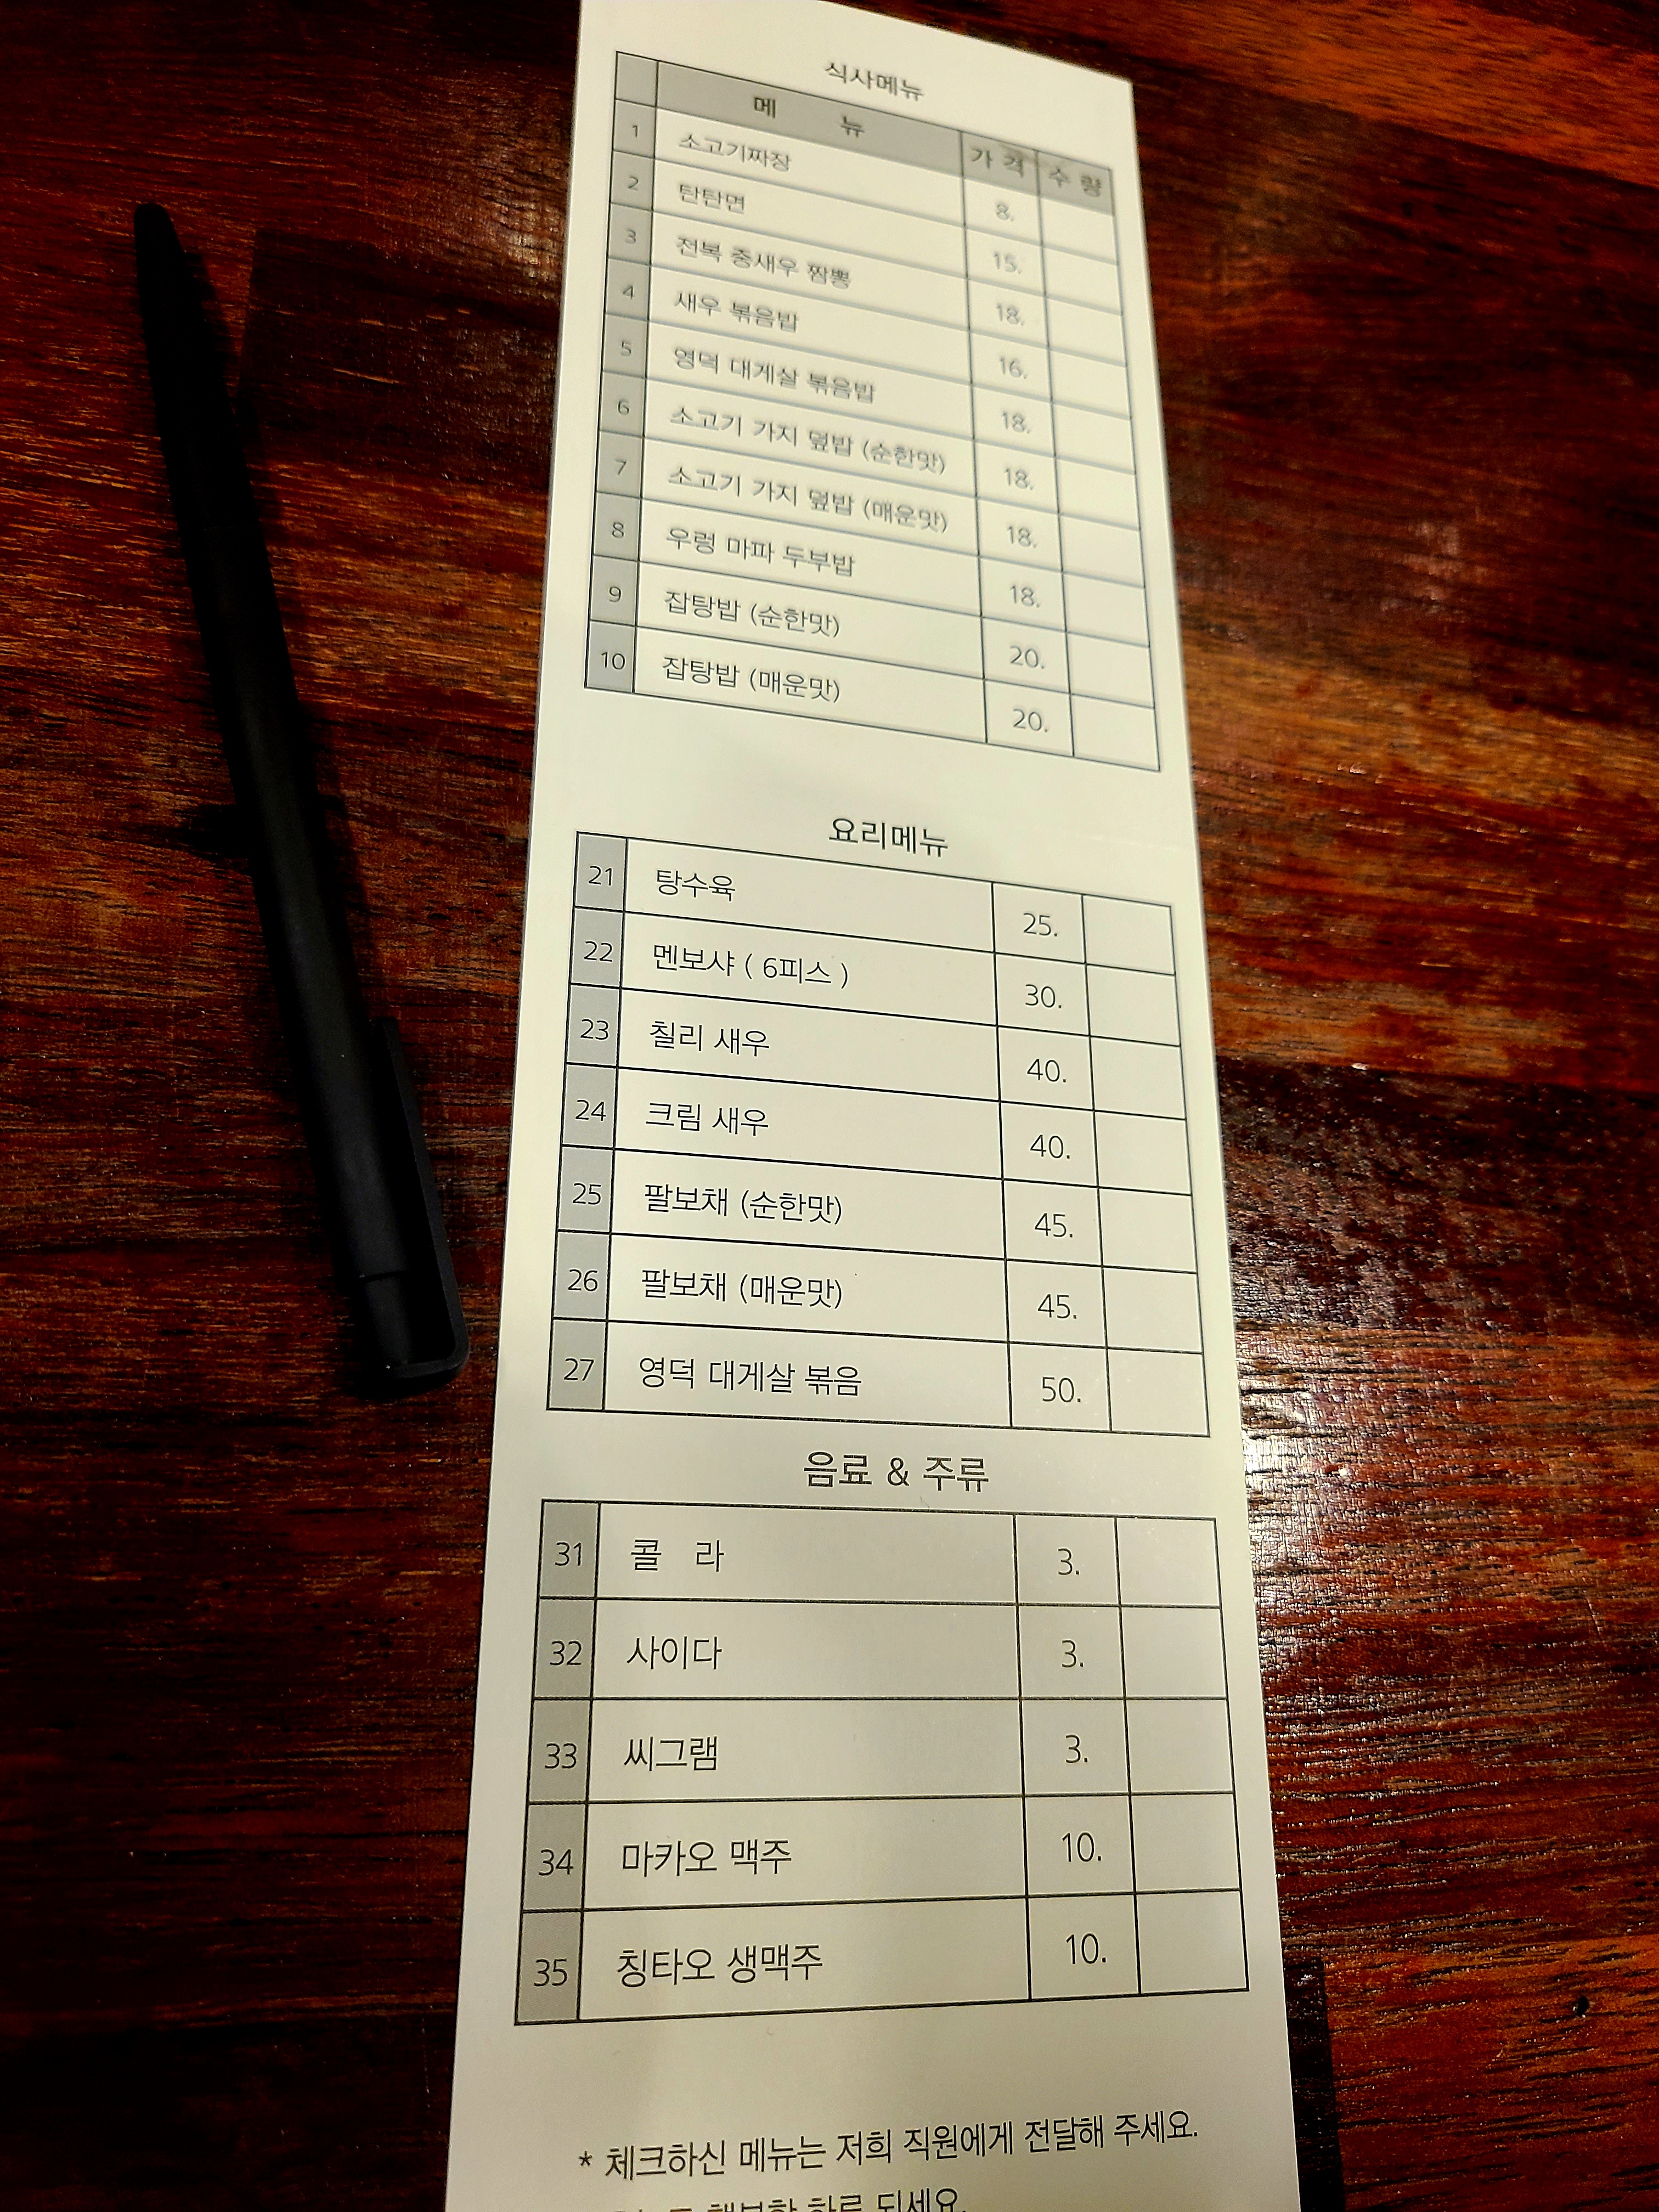 식사메뉴
메 뉴 가 격 수 량
1 소고기짜장 8.
2 탄탄면 15.
3 전복 중새우 짬뽕 18.
4 새우 볶음밥 16.
5 영덕 대게살 볶음밥 18.
6 소고기 가지 덮밥 (순한맛) 18.
7 소고기 가지 덮밥 (매운맛) 18.
8 우렁 마파 두부밥 18.
9 잡탕밥 (순한맛) 20.
10 잡탕밥 (매운맛) 20.
요리메뉴
21 탕수육 25.
22 멘보샤 ( 6피스 ) 30.
23 칠리 새우 40.
24 크림 새우 40.
25 팔보채 (순한맛) 45.
26 팔보채 (매운맛) 45.
27 영덕 대게살 볶음 50.
음료 & 주류
31 콜 라 3.
32 사이다 3.
33 씨그램 3.
34 마카오 맥주 10.
35 칭타오 생맥주 10.
* 체크하신 메뉴는 저희 직원에게 전달해 주세요.
행복한 하루 되세요.